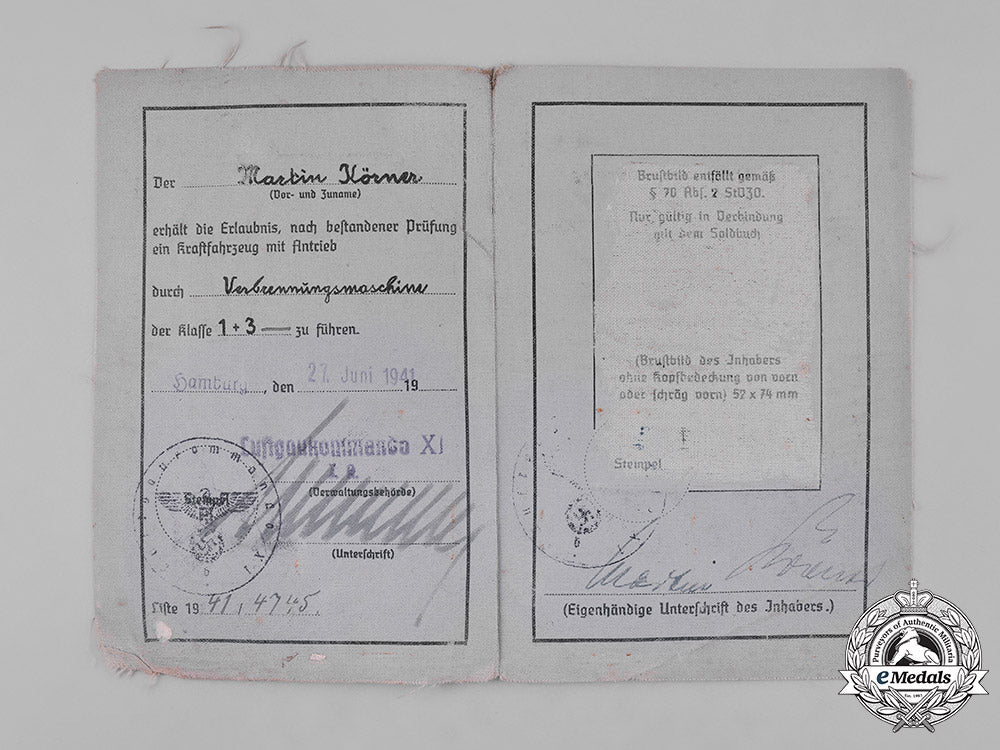 Der Martin Körner
(Vor- und Zuname)
erhält die Erlaubnis, nach bestandener Prüfung
ein Kraftfahrzeug mit Antrieb
durch Verbrennungsmaschine
der Klasse 1 + 3 — zu führen.
Hamburg, den 27. Juni 1941 19
Luftgaukommando XI
(Verwaltungsbehörde)
Stempel
Luftgaukommando XI
(Unterschrift)
Liste 19 41, 4745.
Brustbild entfällt gemäß
§ 70 Abs. 2 StVZO.
Nur gültig in Verbindung
mit dem Soldbuch
(Brustbild des Inhabers
ohne Kopfbedeckung von vorn
oder schräg vorn) 52 x 74 mm
Stempel
Martin Körner
(Eigenhändige Unterschrift des Inhabers.)
Purveyors of Authentic Militaria
eMedals